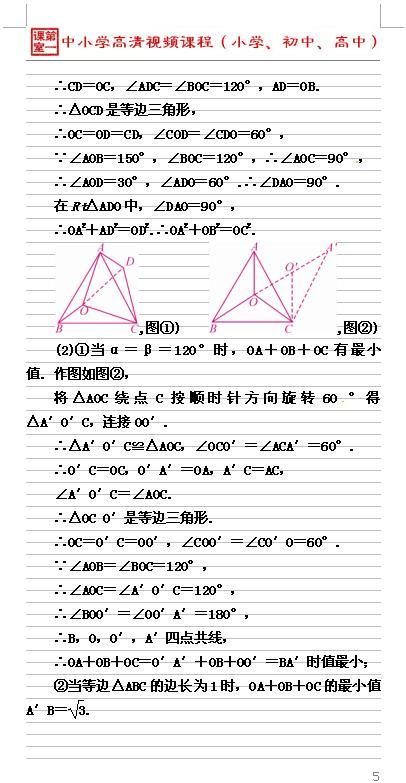 课第
室一 中小学高清视频课程（小学、初中、高中）
∴CD＝OC，∠ADC＝∠BOC＝120°，AD＝OB.
∴△OCD是等边三角形，
∴OC＝OD＝CD，∠COD＝∠CDO＝60°，
∵∠AOB＝150°，∠BOC＝120°，∴∠AOC＝90°，
∴∠AOD＝30°，∠ADO＝60°.∴∠DAO＝90°.
在Rt△ADO中，∠DAO＝90°，
∴OA²＋AD²＝OD².∴OA²＋OB²＝OC².
A D O B C ,图①)
A A′ O′ O B C ,图②)
(2)①当α＝β＝120°时，OA＋OB＋OC有最小
值．作图如图②，
将△AOC绕点C按顺时针方向旋转60°得
△A′O′C，连接OO′.
∴△A′O′C≌△AOC，∠OCO′＝∠ACA′＝60°.
∴O′C＝OC，O′A′＝OA，A′C＝AC，
∠A′O′C＝∠AOC.
∴△OC O′是等边三角形．
∴OC＝O′C＝OO′，∠COO′＝∠CO′O＝60°.
∵∠AOB＝∠BOC＝120°，
∴∠AOC＝∠A′O′C＝120°，
∴∠BOO′＝∠OO′A′＝180°，
∴B，O，O′，A′四点共线，
∴OA＋OB＋OC＝O′A′＋OB＋OO′＝BA′时值最小；
②当等边△ABC的边长为1时，OA＋OB＋OC的最小值
A′B＝√3.
5